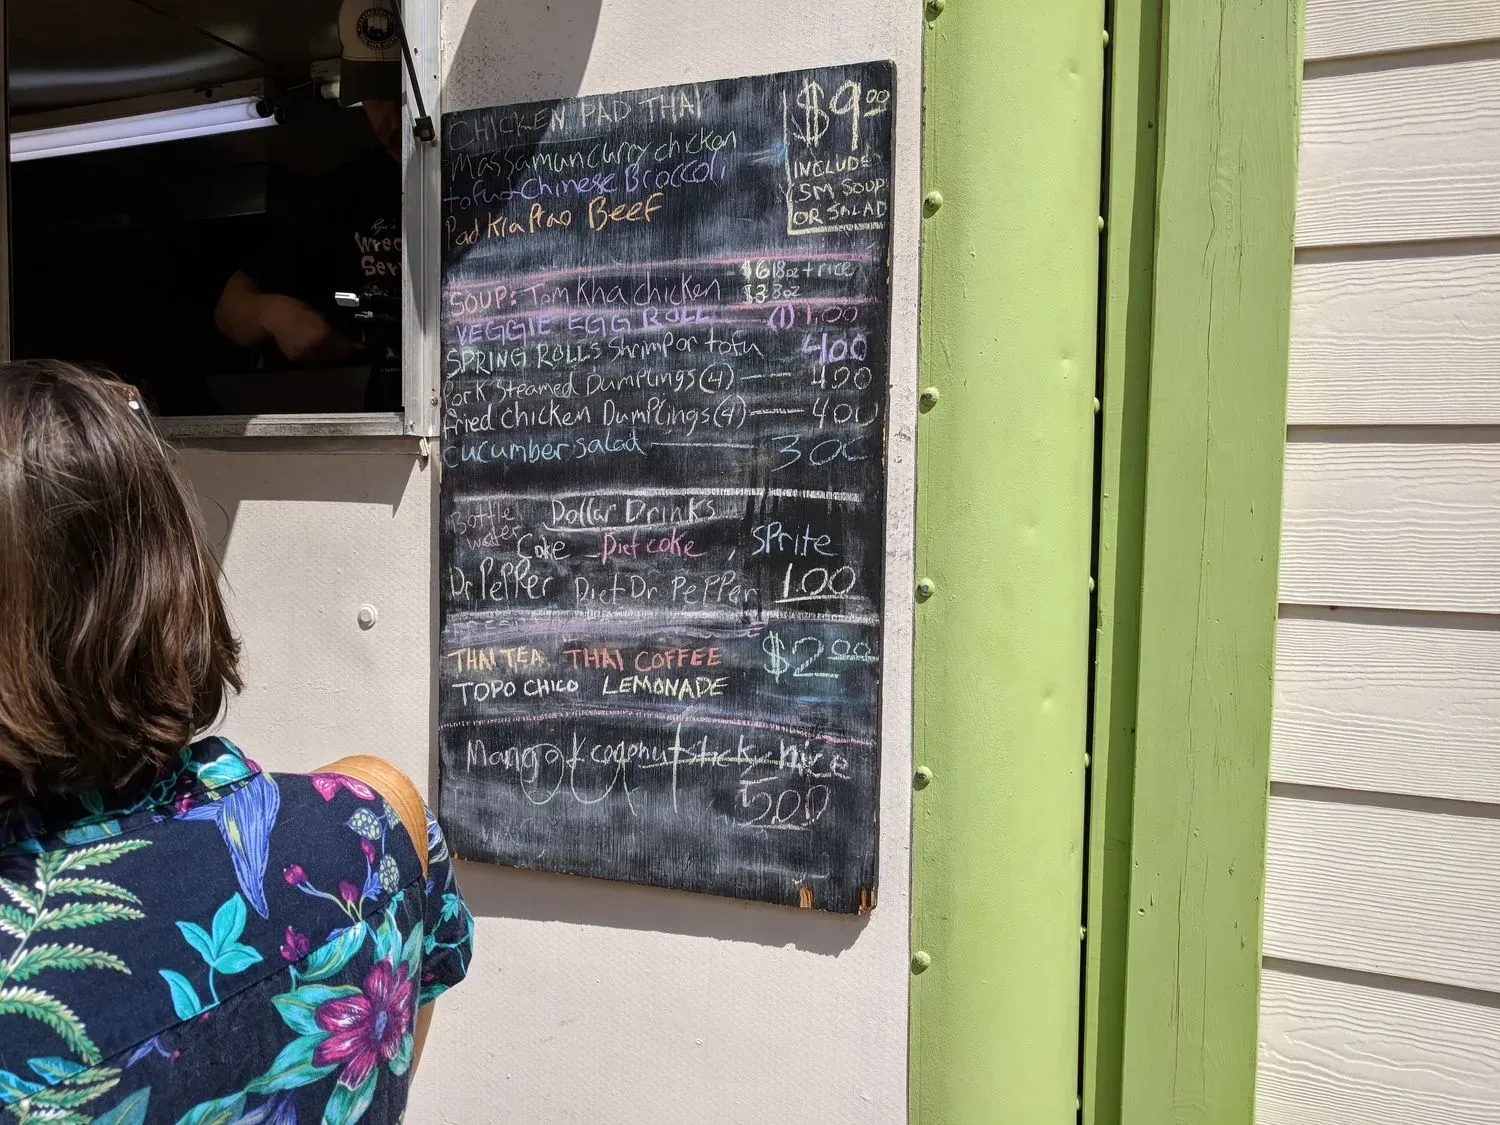 CHICKEN PAD THAI
Massaman curry chicken
tofu Chinese Broccoli
Pad Kra Prao Beef
$9.00
INCLUDES
SM SOUP
OR SALAD
SOUP: Tom Kha chicken $6 18oz + rice
$3 3oz
VEGGIE EGG ROLL (1) 1.00
SPRING ROLLS Shrimp or tofu 400
Pork Steamed Dumplings (4) — 400
fried chicken Dumplings (4) — 400
cucumber salad — 300
Bottle water
Dollar Drinks
Coke Diet coke, Sprite
Dr Pepper Diet Dr Pepper 1.00
THAI TEA THAI COFFEE $2.00
TOPO CHICO LEMONADE
Mango & coconut sticky rice
500
Wrec
Ser